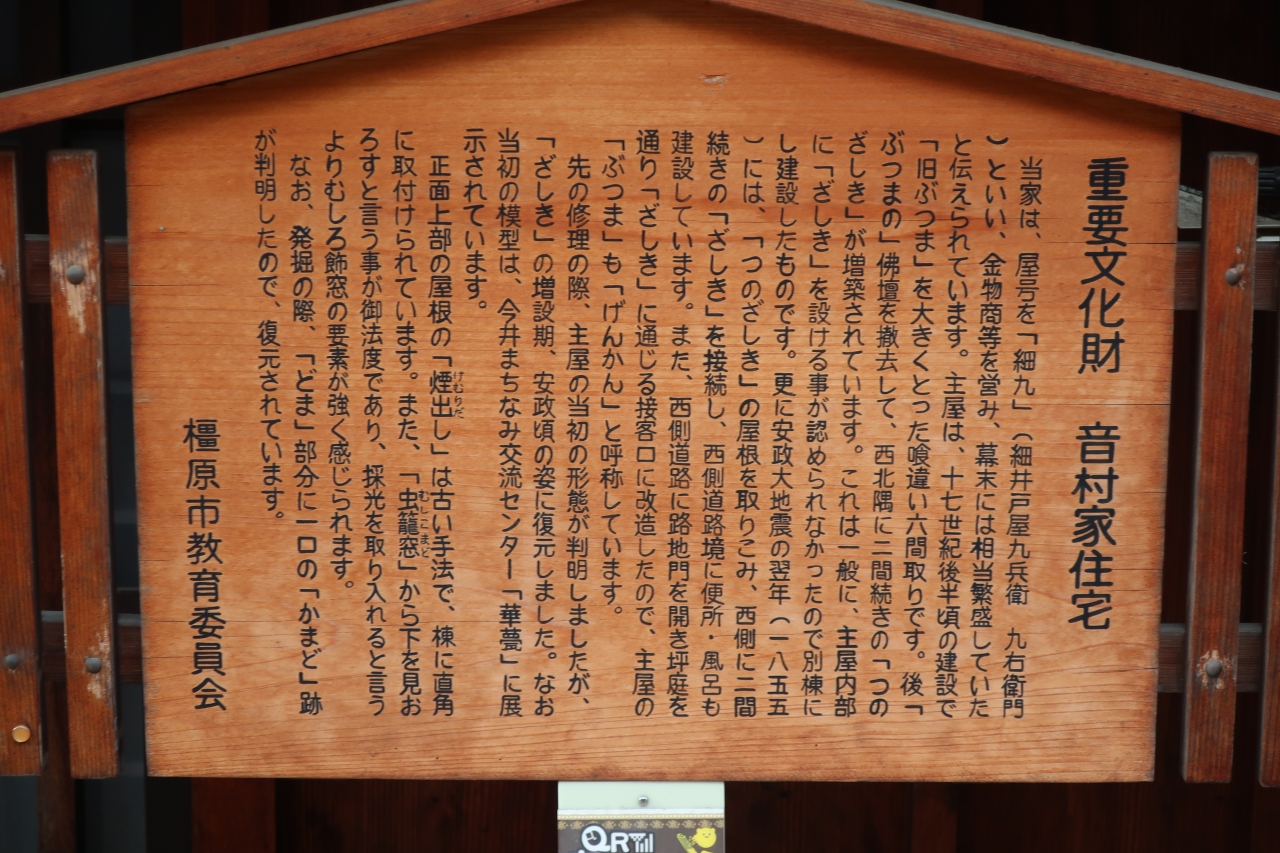 重要文化財　音村家住宅
　当家は、屋号を「細九」（細井戸屋九兵衛　九右衛門
）といい、金物商等を営み、幕末には相当繁盛していた
と伝えられています。主屋は、十七世紀後半頃の建設で
「旧ぶつま」を大きくとった喰違い六間取りです。後「
ぶつまの」佛壇を撤去して、西北隅に二間続きの「つの
ざしき」が増築されています。これは一般に、主屋内部
に「ざしき」を設ける事が認められなかったので別棟に
し建設したものです。更に安政大地震の翌年（一八五五
）には、「つのざしき」の屋根を取りこみ、西側に二間
続きの「ざしき」を接続し、西側道路境に便所・風呂も
建設しています。また、西側道路に路地門を開き坪庭を
通り「ざしき」に通じる接客口に改造したので、主屋の
「ぶつま」も「げんかん」と呼称しています。
　先の修理の際、主屋の当初の形態が判明しましたが、
「ざしき」の増設期、安政頃の姿に復元しました。なお
当初の模型は、今井まちなみ交流センター「華甍」に展
示されています。
　正面上部の屋根の「煙出し」は古い手法で、棟に直角
けむりだ
に取付けられています。また、「虫籠窓」から下を見お
むしこまど
ろすと言う事が御法度であり、採光を取り入れると言う
よりむしろ飾窓の要素が強く感じられます。
　なお、発掘の際、「どま」部分に一口の「かまど」跡
が判明したので、復元されています。
橿原市教育委員会
QR